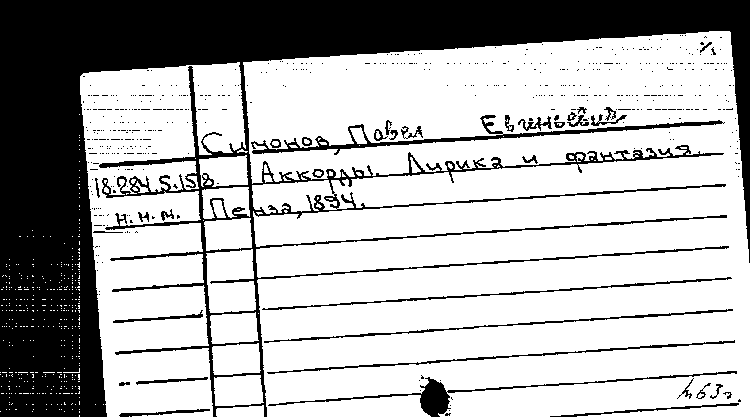 Симонов, Павел Евгеньевич
18.284.5.158. Аккорды. Лирика и фантазия.
н.н.м. Пенза, 1894.